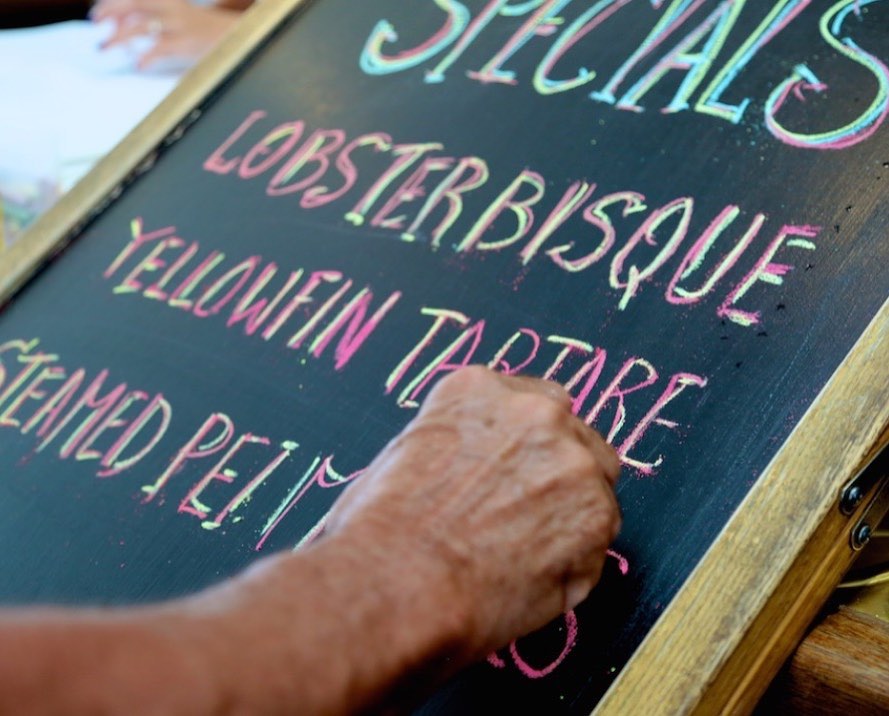 SPECIALS
LOBSTER BISQUE
YELLOWFIN TARTARE
STEAMED PEI